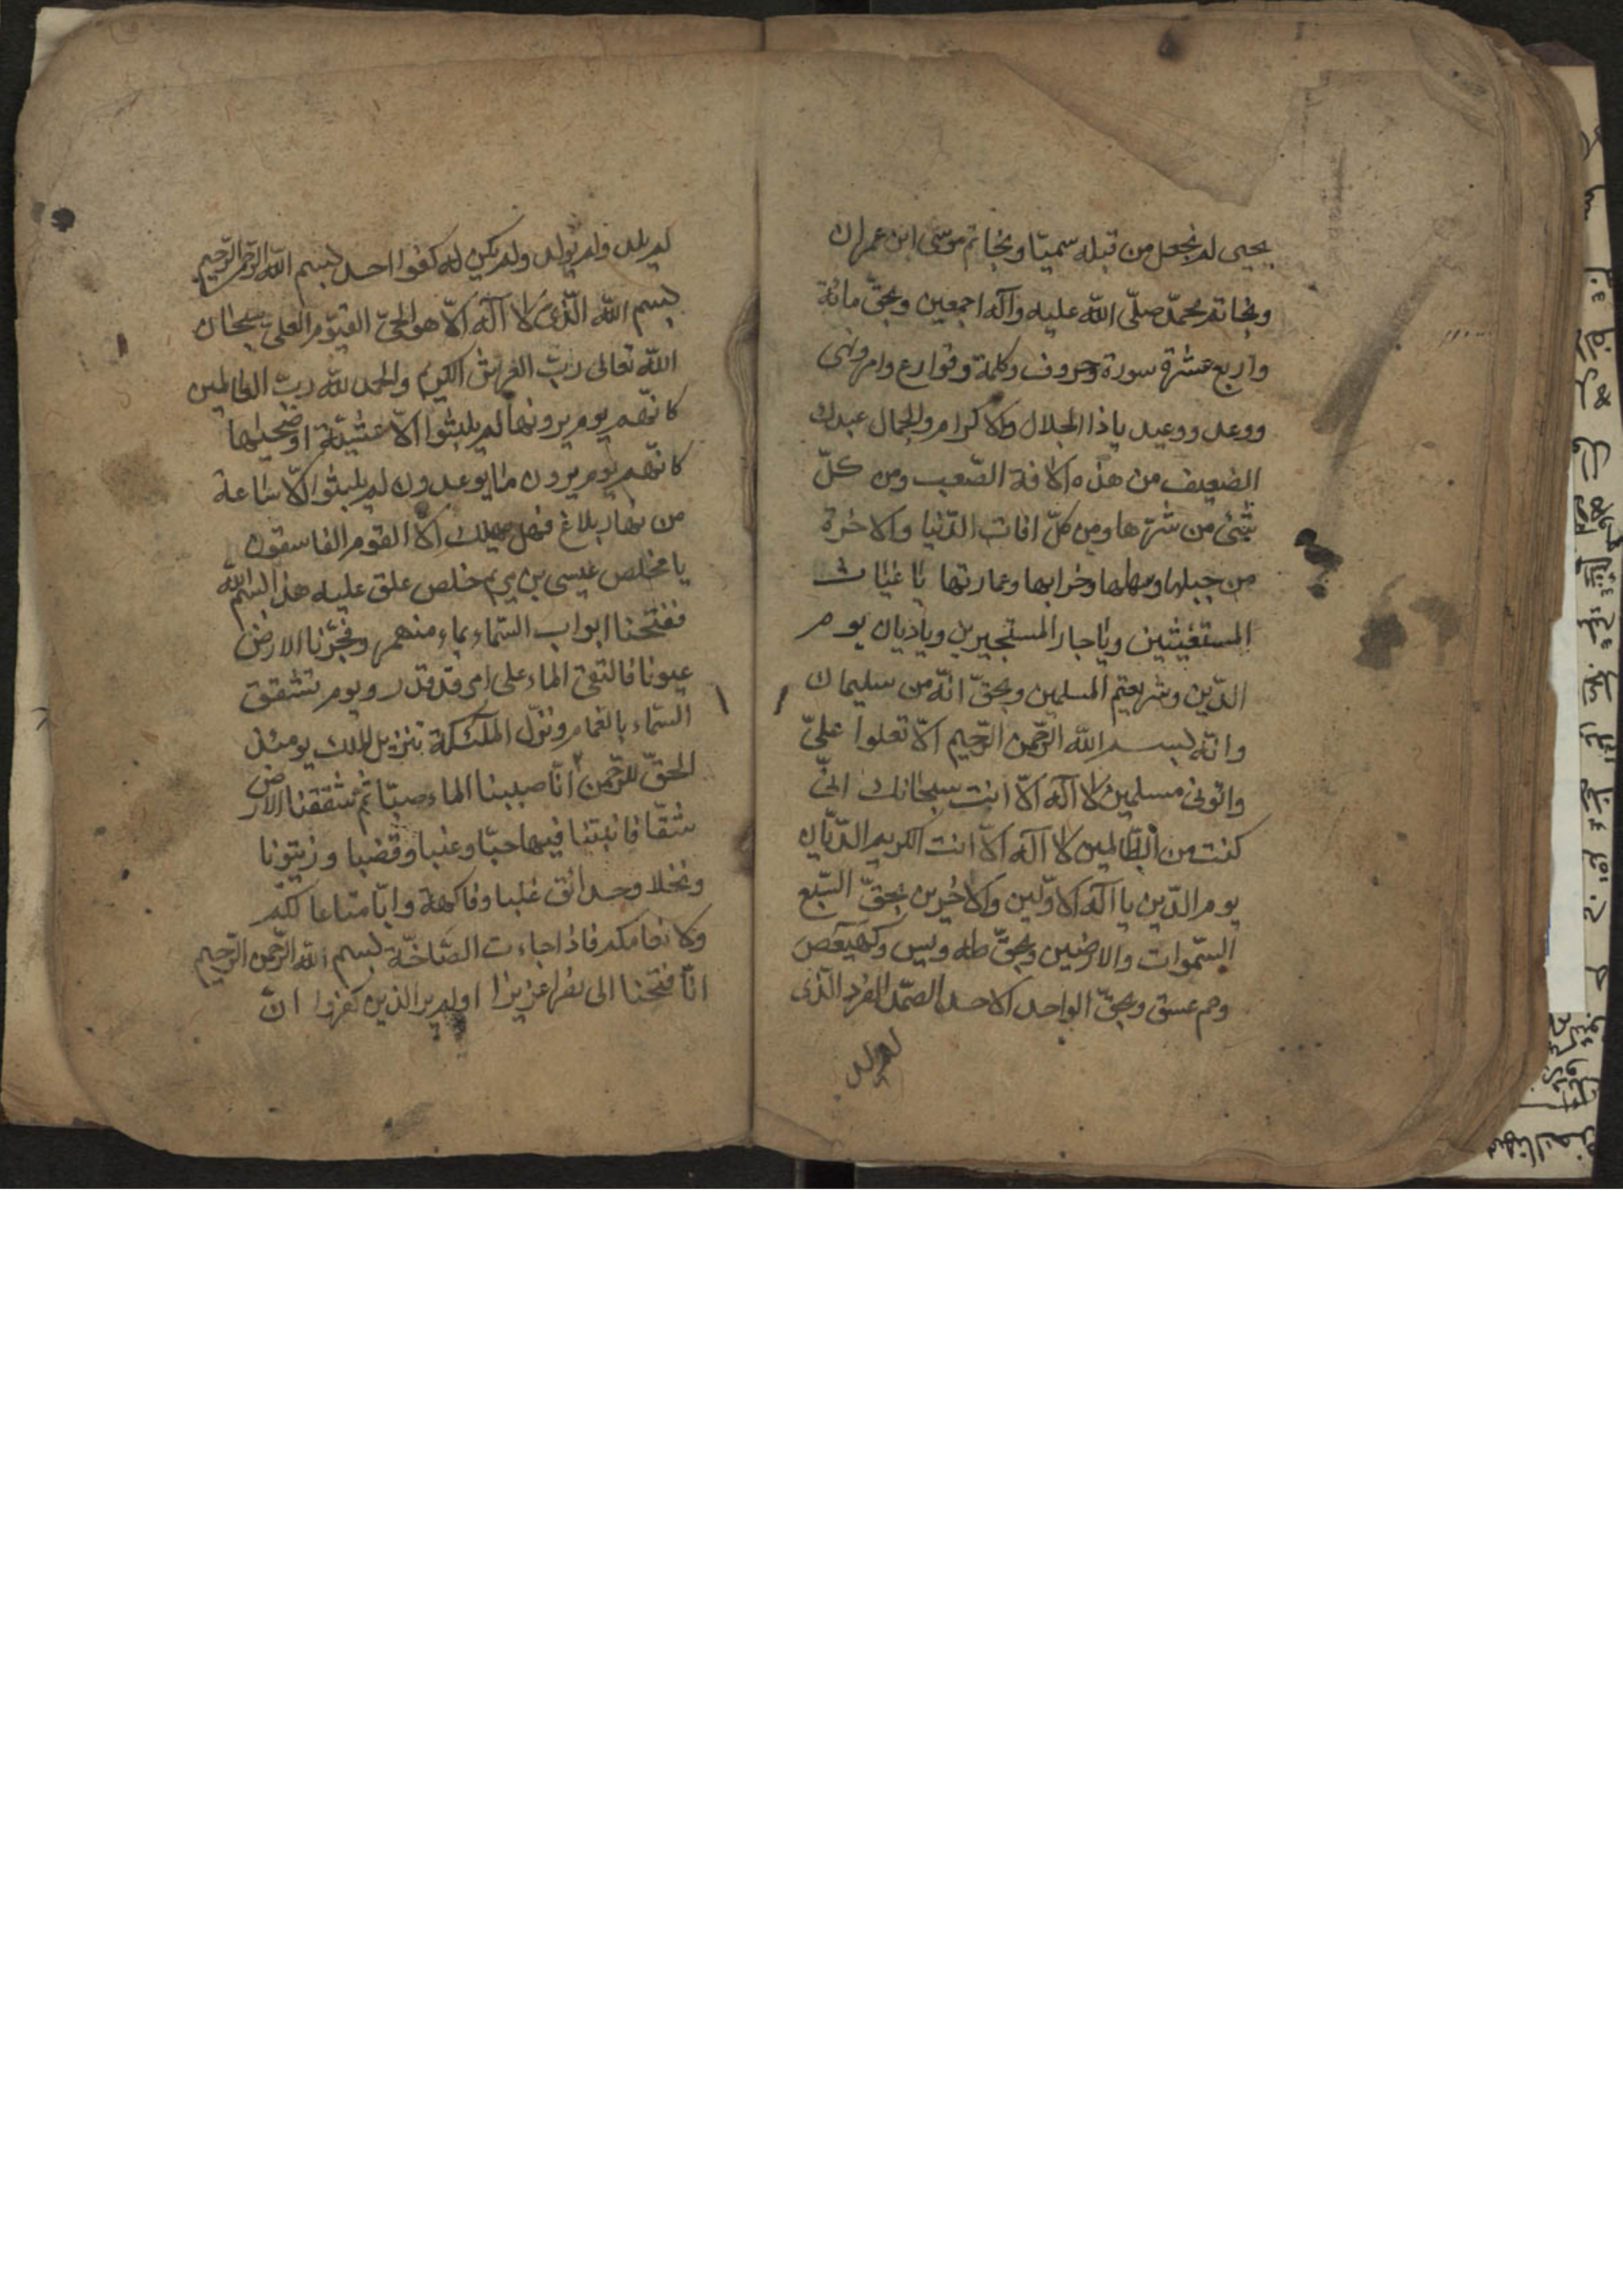 يحيى لم نجعل من قبله سميّا وبخاتم موسى ابن عمران
وبخاتم محمّد صلّى الله عليه وآله اجمعين وبحقّ مائة
واربع عشرة سورة وحروف وكلمة وقوارع وامر ونهى
ووعد ووعيد ياذا الجلال والاكرام والجمال عبدك
الضعيف من هذه الافة الصّعب ومن كلّ
شئ من شرّها ومن كلّ افات الدّنيا والاخرة
من جبلها وسهلها وخرابها وعمارتها يا غياث
المستغيثين ويا جار المستجيرين وياديان يوم
الدّين وشريعتم المسلمين وبحقّ انّه من سليمان
وانّه بسم الله الرّحمن الرّحيم الّا تعلوا علىّ
واتونى مسلمين لا آله الّا انت سبحانك انّى
كنت من الظّالمين لا آله الّا انت الكريم الدّيّان
يوم الدّين يا آله الاوّلين والاخرين بحقّ السّبع
السّموات والارضين وبحقّ طه ويس وكهيعص
وحم عسق وبحقّ الواحد الاحد الصّمد الفرد الّذى
لم يلد
لم يلد ولم يولد ولم يكن له كفوا احد بسم الله الرّحمن الرّحيم
بسم الله الّذى لا آله الّا هو الحىّ القيّوم العلىّ سبحان
الله تعالى ربّ العرش الكريم والحمد لله ربّ العالمين
كانّهم يوم يرونها لم يلبثوا الّا عشيّة او ضحيها
كانّهم يوم يرون ما يوعدون لم يلبثوا الّا ساعة
من نهار بلاغ فهل يهلك الّا القوم الفاسقون
يا مخلص عيسى بن مريم خلص علق عليه هذا بسم الله
ففتحنا ابواب السّماء بماء منهمر وفجّرنا الارض
عيونا فالتقى الماء على امر قد قدر ويوم تشقق
السّماء بالغمام ونزّل الملئكة تنزيل الملك يومئذ
الحقّ للرّحمن انّا صببنا الماء صبّا ثمّ شققنا الارض
شقّا فانبتنا فيها حبّا وعنبا وقضبا وزيتونا
ونخلا وحدائق غلبا وفاكهة وابّا متاعا لكم
ولانعامكم فاذا جاءت الصّاخّة بسم الله الرّحمن الرّحيم
انّا فتحنا الى نصرا عزيزا اولم ير الذين كفروا انّ